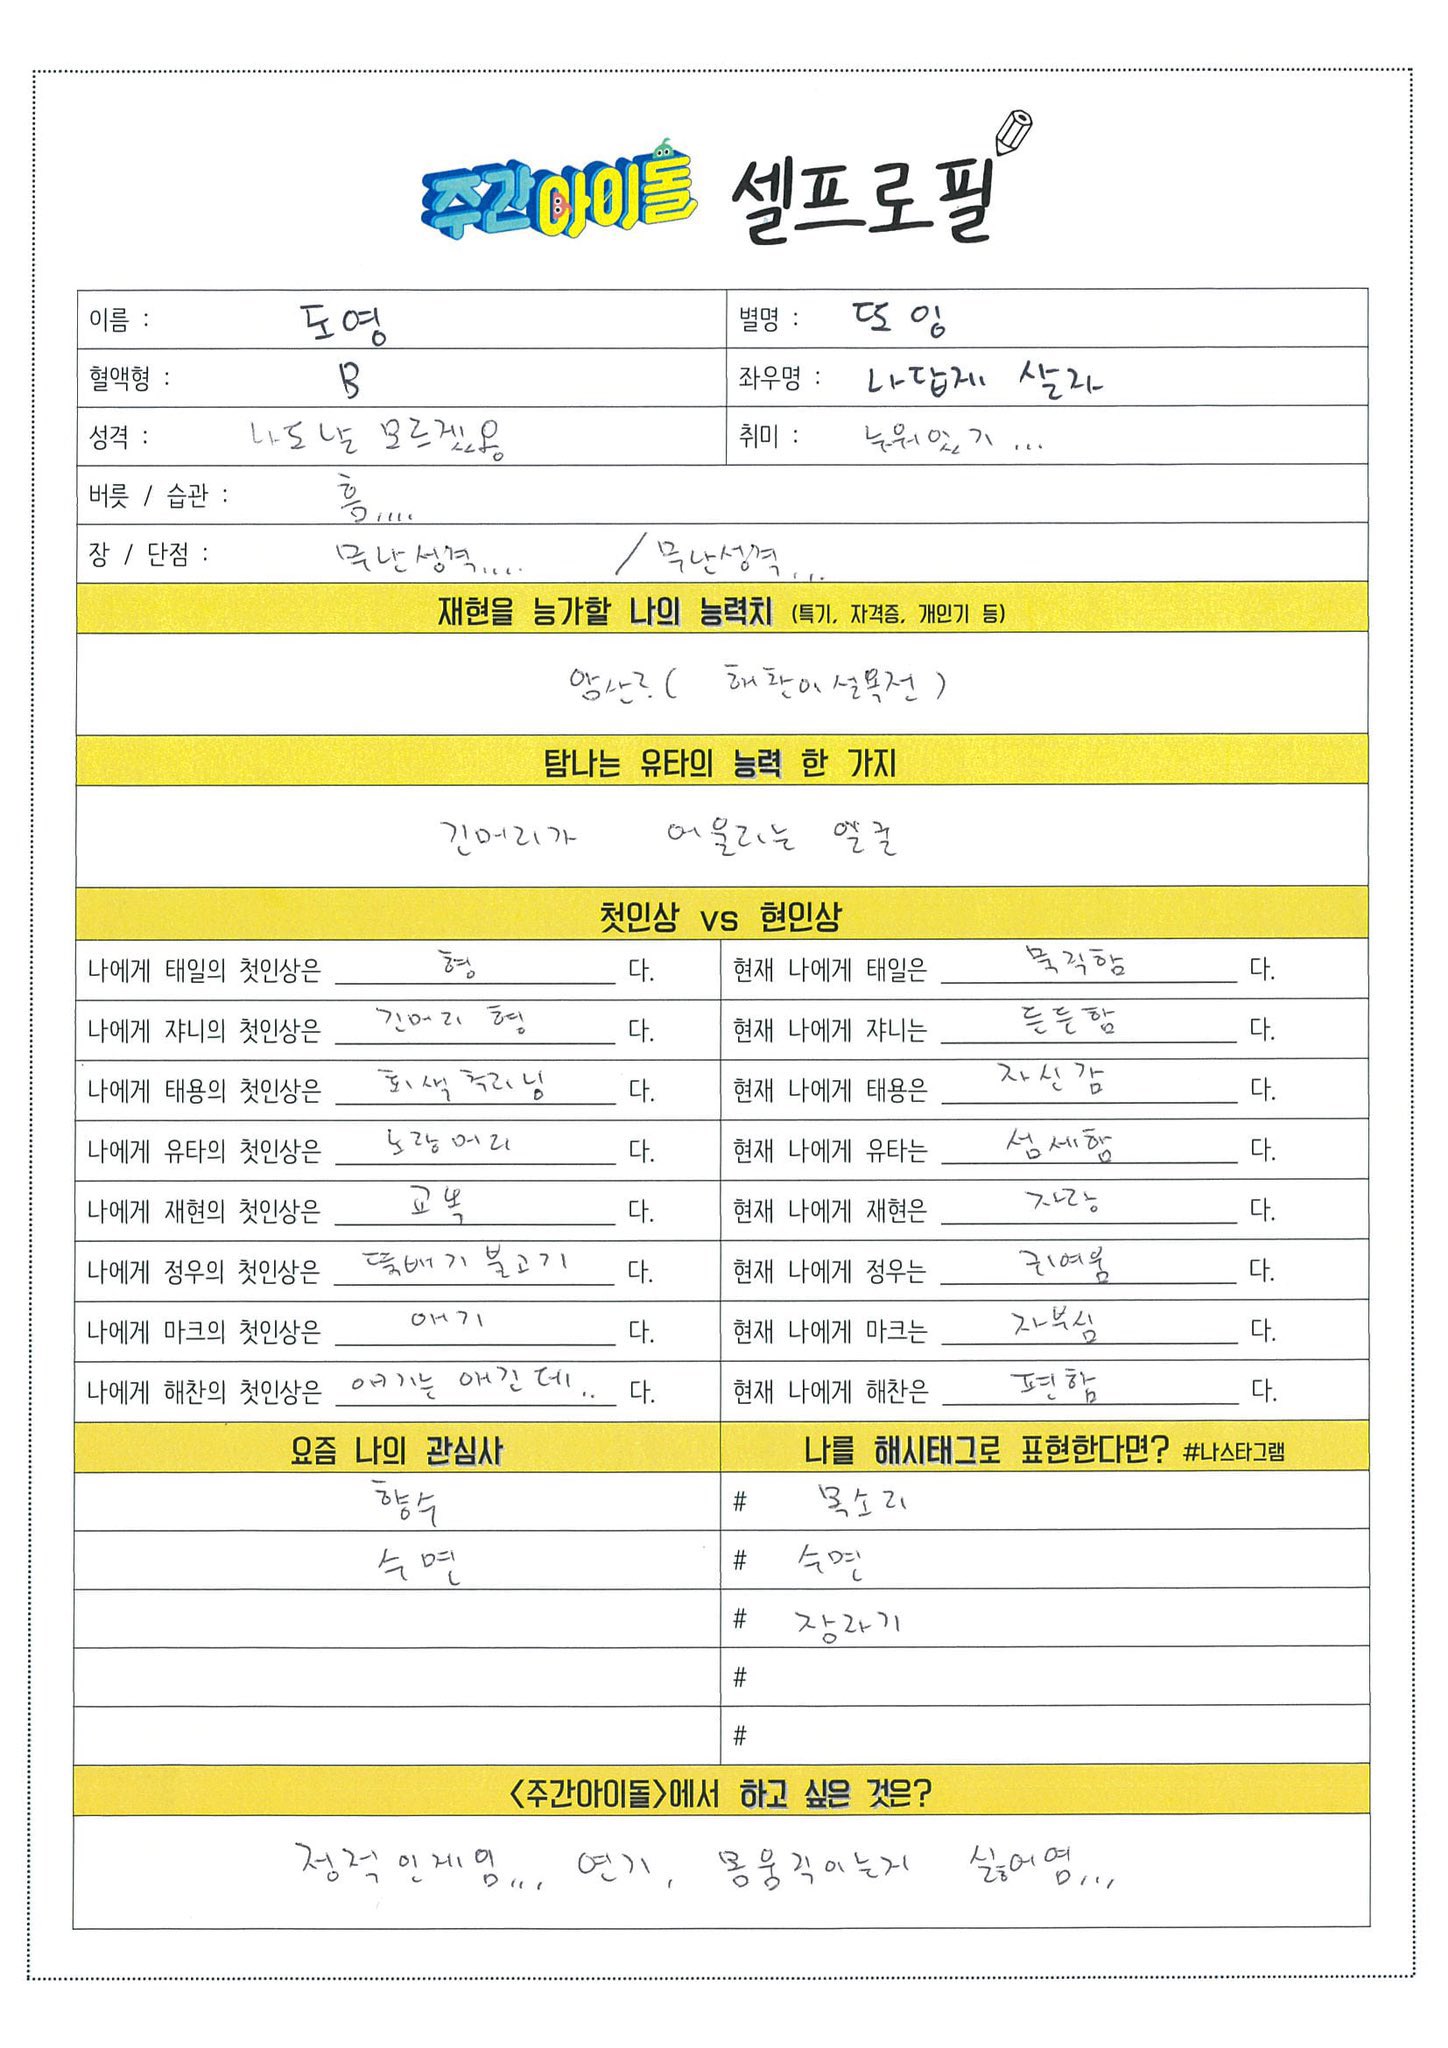 주간아이돌 셀프로필
이름 : 도영 별명 : 또잉
혈액형 : B 좌우명 : 나답게 살자
성격 : 나도 날 모르겠용 취미 : 누워있기...
버릇 / 습관 : 흠....
장 / 단점 : 무난성격.... / 무난성격...
재현을 능가할 나의 능력치 (특기, 자격증, 개인기 등)
암산? ( 해찬이 설욕전 )
탐나는 유타의 능력 한 가지
긴머리가 어울리는 얼굴
첫인상 vs 현인상
나에게 태일의 첫인상은 형 다. 현재 나에게 태일은 묵직함 다.
나에게 쟈니의 첫인상은 긴머리 형 다. 현재 나에게 쟈니는 든든함 다.
나에게 태용의 첫인상은 회색츄리닝 다. 현재 나에게 태용은 자신감 다.
나에게 유타의 첫인상은 노랑머리 다. 현재 나에게 유타는 섬세함 다.
나에게 재현의 첫인상은 교복 다. 현재 나에게 재현은 자랑 다.
나에게 정우의 첫인상은 뚝배기불고기 다. 현재 나에게 정우는 귀여움 다.
나에게 마크의 첫인상은 애기 다. 현재 나에게 마크는 자부심 다.
나에게 해찬의 첫인상은 애기는 애긴데.. 다. 현재 나에게 해찬은 편함 다.
요즘 나의 관심사 나를 해시태그로 표현한다면? #나스타그램
향수 # 목소리
수면 # 수면
# 장라기
#
#
<주간아이돌>에서 하고 싶은 것은?
정적인게임,,, 연기, 몸움직이는거 싫어염,,,